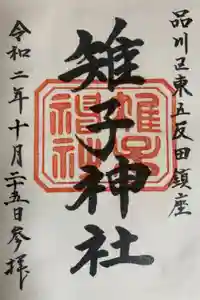 品川区東五反田鎮座
雉子神社
雉子神社
令和二年十月二十五日参拝